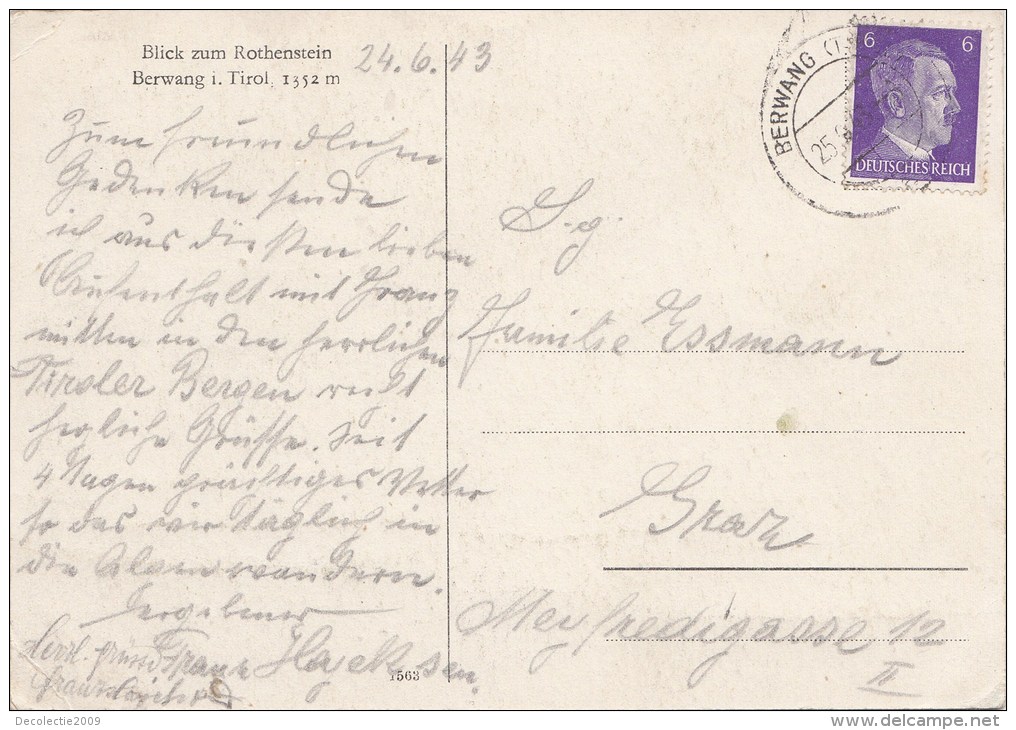 Blick zum Rothenstein
Berwang i. Tirol, 1352 m
24.6.43
BERWANG
25.
6 6
DEUTSCHES REICH
Zum freundlichen
Gedenken sende
ich aus diesten lieben
Aufenthalt mit Franz
mitten in den herrlichen
Tiroler Bergen recht
herzliche Grüsse. Seit
4 Tagen prächtiges Wetter
so das wir täglich in
die Almen wandern.
Franz Hayek sen.
Herzl. grüsse
Franz
S. g.
Familie Essmann
Graz
Meyfredigasse 12
II
1563
Decolectie2009
delcampe.net